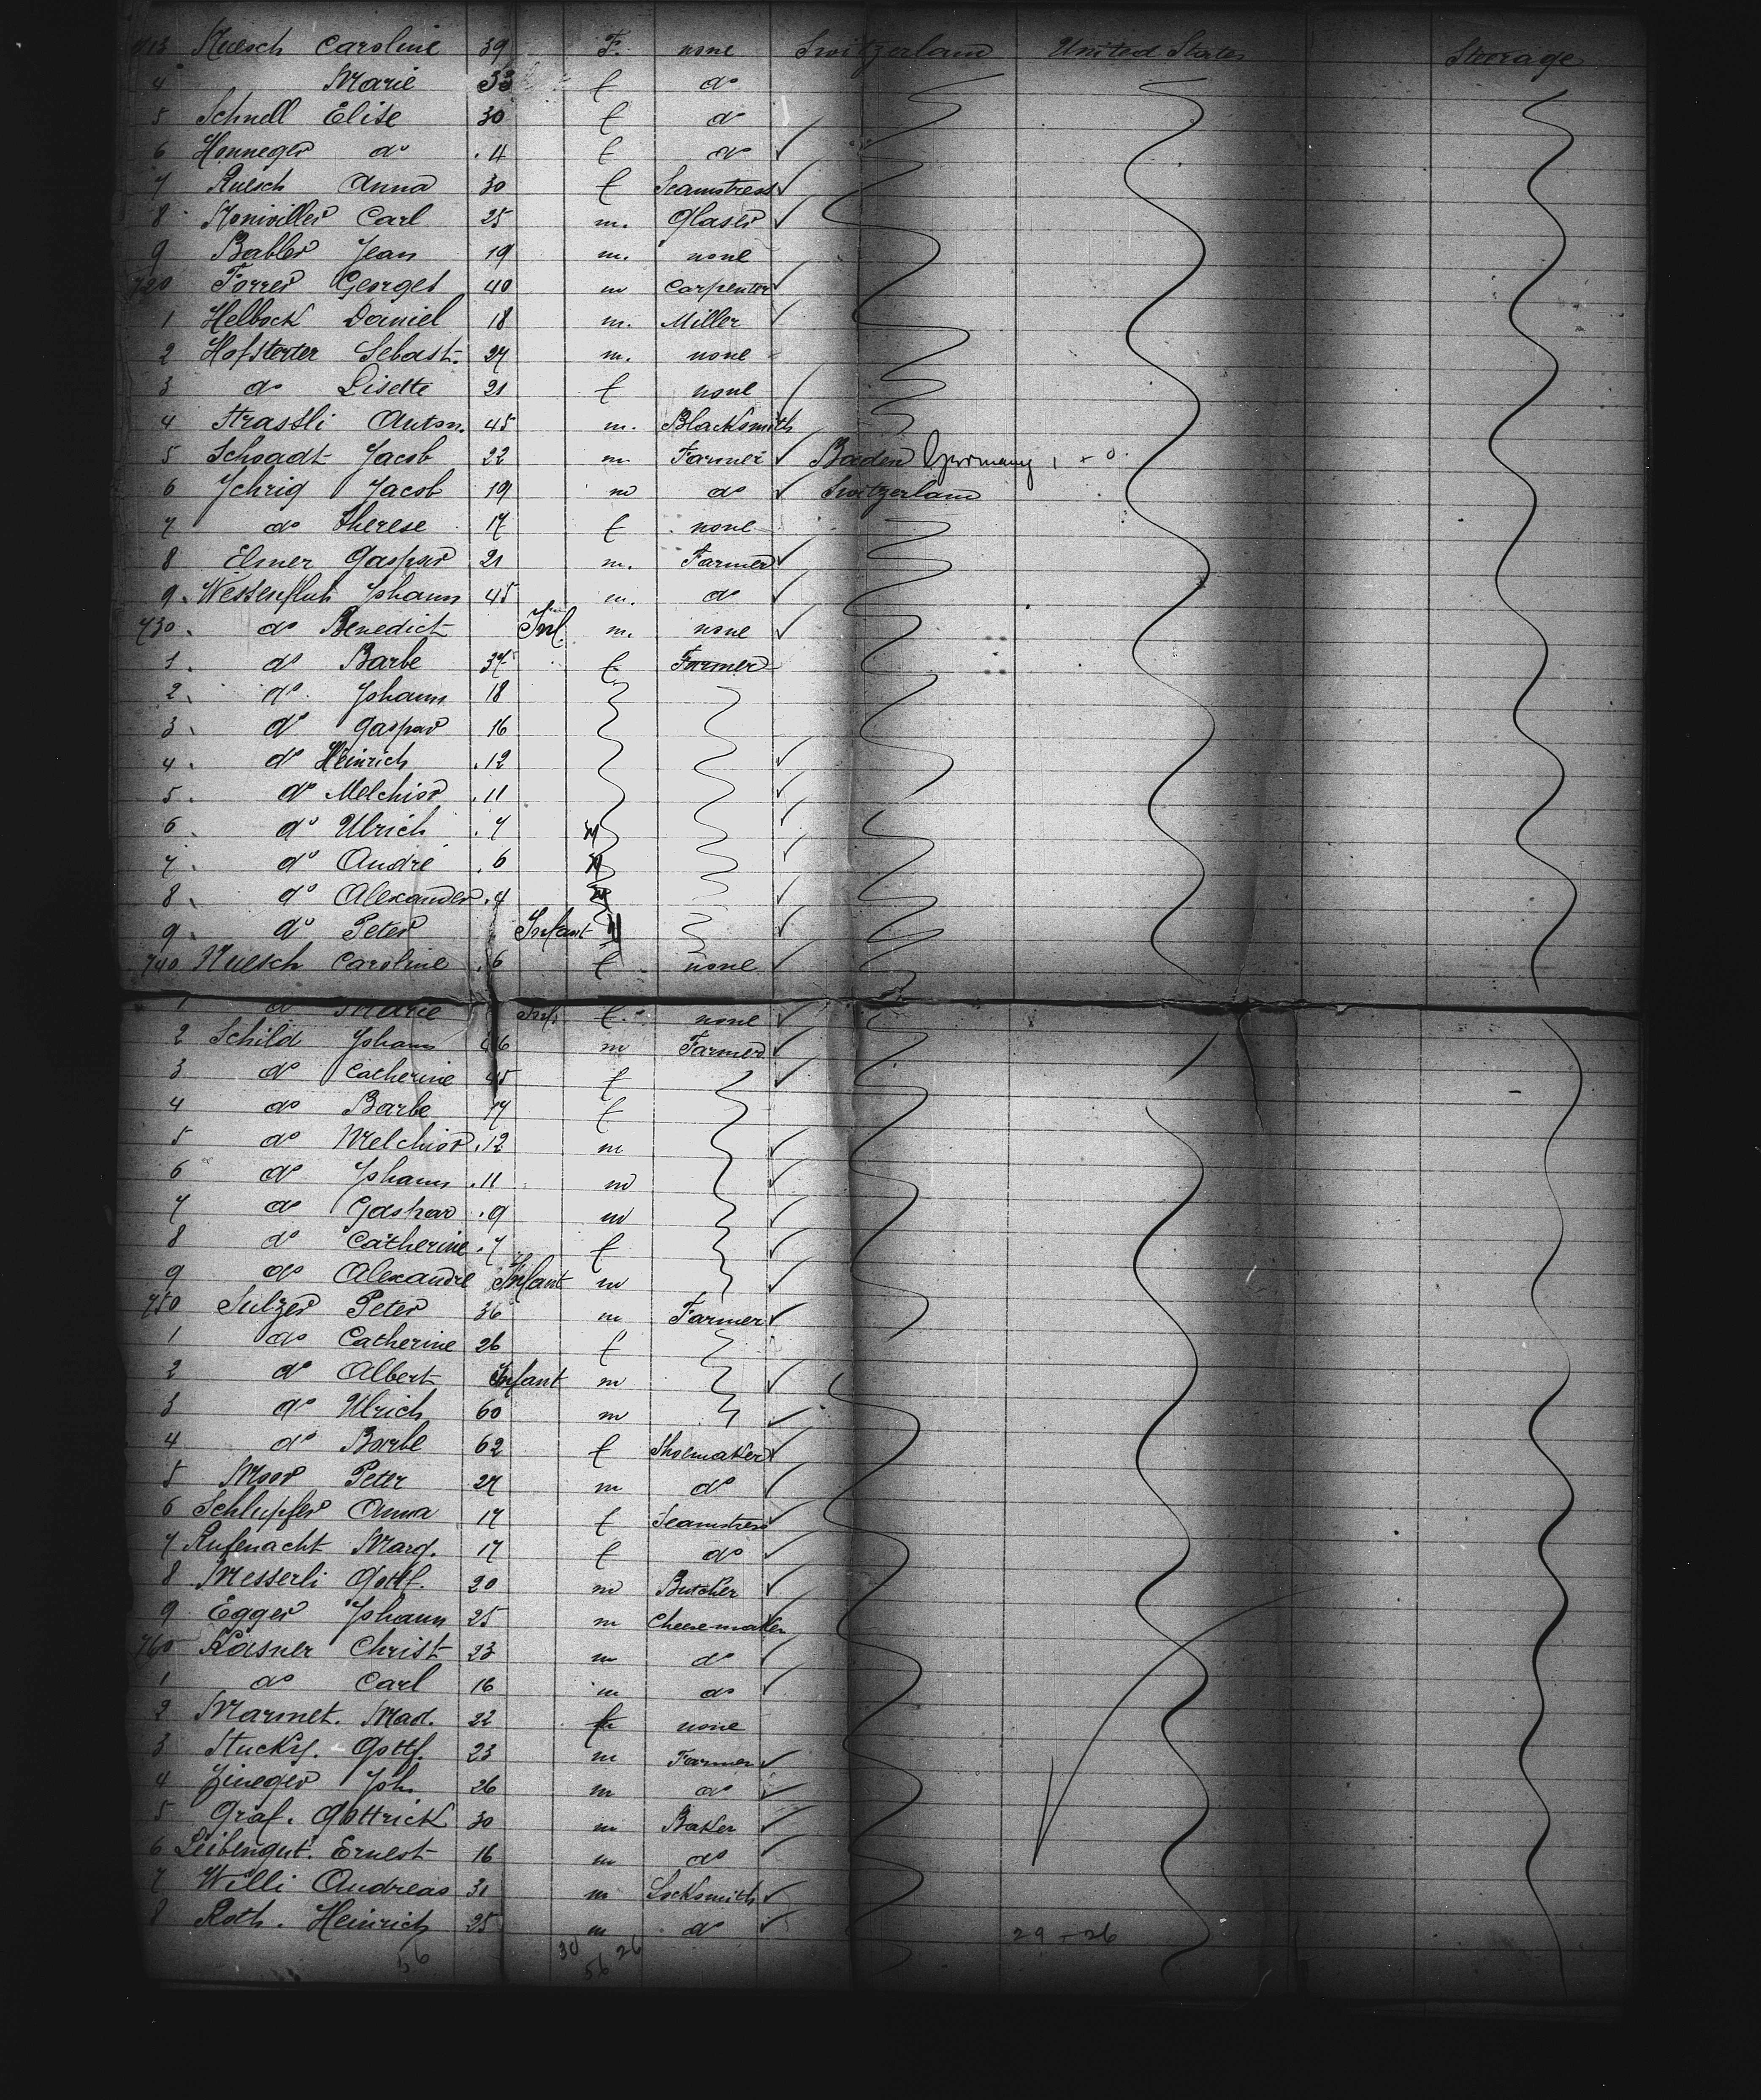 713 Nuesch Caroline 39 F. none Switzerland United States Steerage
4 Marie 33 f do
5 Schnell Elise 30 f do
6 Honneger do 4 f do
7 Ruesch Anna 30 f Seamstress
8 Carl 25 m. Glaser
9 Babler Jean 19 m. none
720 Forrer Georges 40 m Carpenter
1 Helbock Daniel 18 m. Miller
2 Hofstetter Sebast. 27 m. none
3 do Lisette 21 f none
4 Strassli Anton. 45 m. Blacksmith
5 Schoadt Jacob 22 m Farmer Baden Germany
6 Jchrig Jacob 19 m do Switzerland
7 do Therese 17 f none
8 Elmer Gaspar 21 m. Farmer
9 Westenfluh Johann 45 m. do
730 do Benedict Inf. m. none
1 do Barbe 37 f Farmer
2 do Johann 18
3 do Gaspar 16
4 do Heinrich 12
5 do Melchior 11
6 do Ulrich 7 M
7 do André 6 M
8 do Alexander 4 M
9 do Peter Infant
740 Nuesch Caroline 6 f none
1 do Marie Inf. f. none
2 Schild Johann 46 m Farmer
3 do Catherine 45 f
4 do Barbe 17 f
5 do Melchior 12 m
6 do Johann 11 m
7 do Gaspar 9 m
8 do Catherine 7 f
9 do Alexandre Infant m
750 Sulzer Peter 36 m Farmer
1 do Catherine 26 f
2 do Albert Infant m
3 do Ulrich 60 m
4 do Barbe 62 f Shoemaker
5 Moor Peter 27 m do
6 Schlupfer Anna 17 f Seamstress
7 Rufenacht Marg. 17 f do
8 Messerli Gottf. 20 m Butcher
9 Egger Johann 25 m Cheesemaker
760 Kasner Christ 23 m do
1 do Carl 16 m do
2 Marmet. Mad. 22 f none
3 Stucky. Gottf. 23 m Farmer
4 Joh. 26 m do
5 Graf. Gottrick 30 m Baker
6 Leibengut. Ernest 16 m do
7 Willi Andreas 31 m Locksmith
8 Roth. Heinrich 25 m do
56 30 26 29 - 26
56